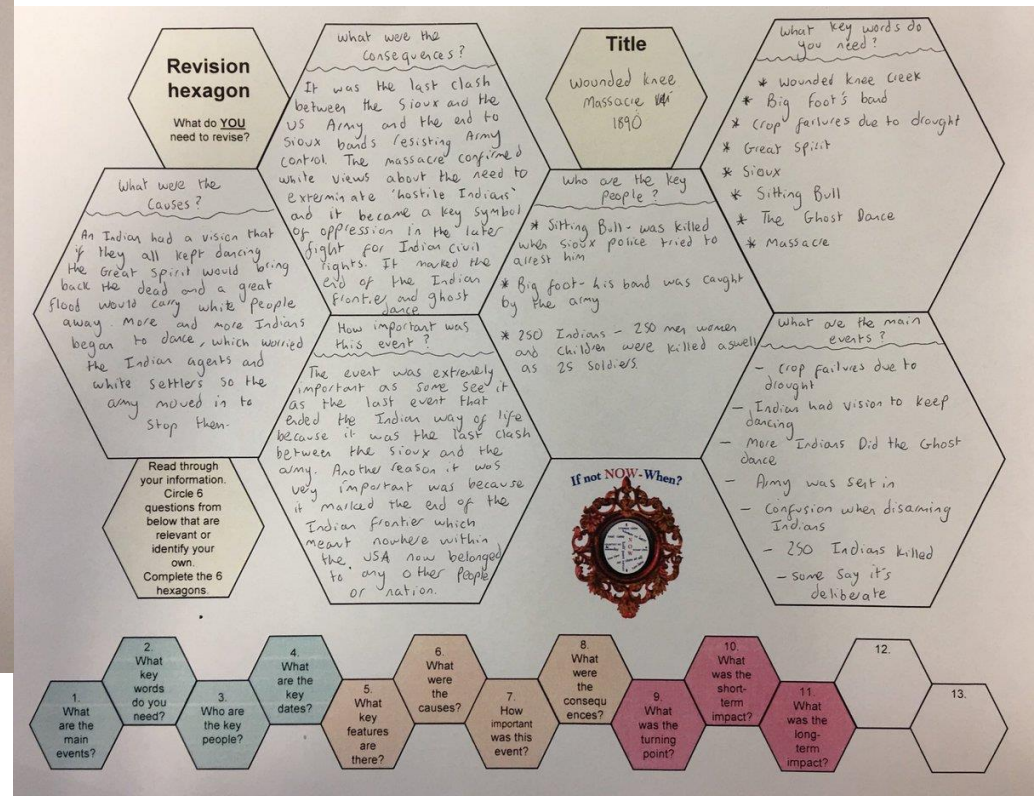 Revision
hexagon
What do YOU
need to revise?
What were the
consequences?
It was the last clash
between the Sioux and the
US Army and the end to
Sioux bands resisting Army
control. The massacre confirmed
white views about the need to
exterminate 'hostile Indians'
and it became a key symbol
of oppression in the later
fight for Indian civil
rights. It marked the
end of the Indian
frontier and ghost
dance.
Title
Wounded Knee
Massacre
1890
What key words do
you need?
* Wounded Knee Creek
* Big Foot's band
* Crop failures due to drought
* Great Spirit
* Sioux
* Sitting Bull
* The Ghost Dance
* Massacre
What were the
Causes?
An Indian had a vision that
if they all kept dancing
the Great Spirit would bring
back the dead and a great
flood would carry white people
away. More and more Indians
began to dance, which worried
the Indian agents and
white settlers so the
army moved in to
stop them.
Who are the key
people?
* Sitting Bull - was killed
when Sioux police tried to
arrest him
* Big foot - his band was caught
by the army
* 250 Indians - 250 men women
and children were killed aswell
as 25 soldiers
How important was
this event?
The event was extremely
important as some see it
as the last event that
ended the Indian way of life
because it was the last clash
between the Sioux and the
army. Another reason it was
very important was because
it marked the end of the
Indian frontier which
meant nowhere within
the USA now belonged
to any other people
or nation.
What are the main
events?
- Crop failures due to
drought
- Indian had vision to keep
dancing
- More Indians Did the Ghost
dance
- Army was sent in
- Confusion when disarming
Indians
- 250 Indians killed
- some say it's
deliberate
Read through
your information.
Circle 6
questions from
below that are
relevant or
identify your
own.
Complete the 6
hexagons.
If not NOW-When?
1.
What
are the
main
events?
2.
What
key
words
do you
need?
3.
Who are
the key
people?
4.
What
are the
key
dates?
5.
What
key
features
are
there?
6.
What
were
the
causes?
7.
How
important
was this
event?
8.
What
were
the
consequ
ences?
9.
What
was the
turning
point?
10.
What
was the
short-
term
impact?
11.
What
was the
long-
term
impact?
12.
13.